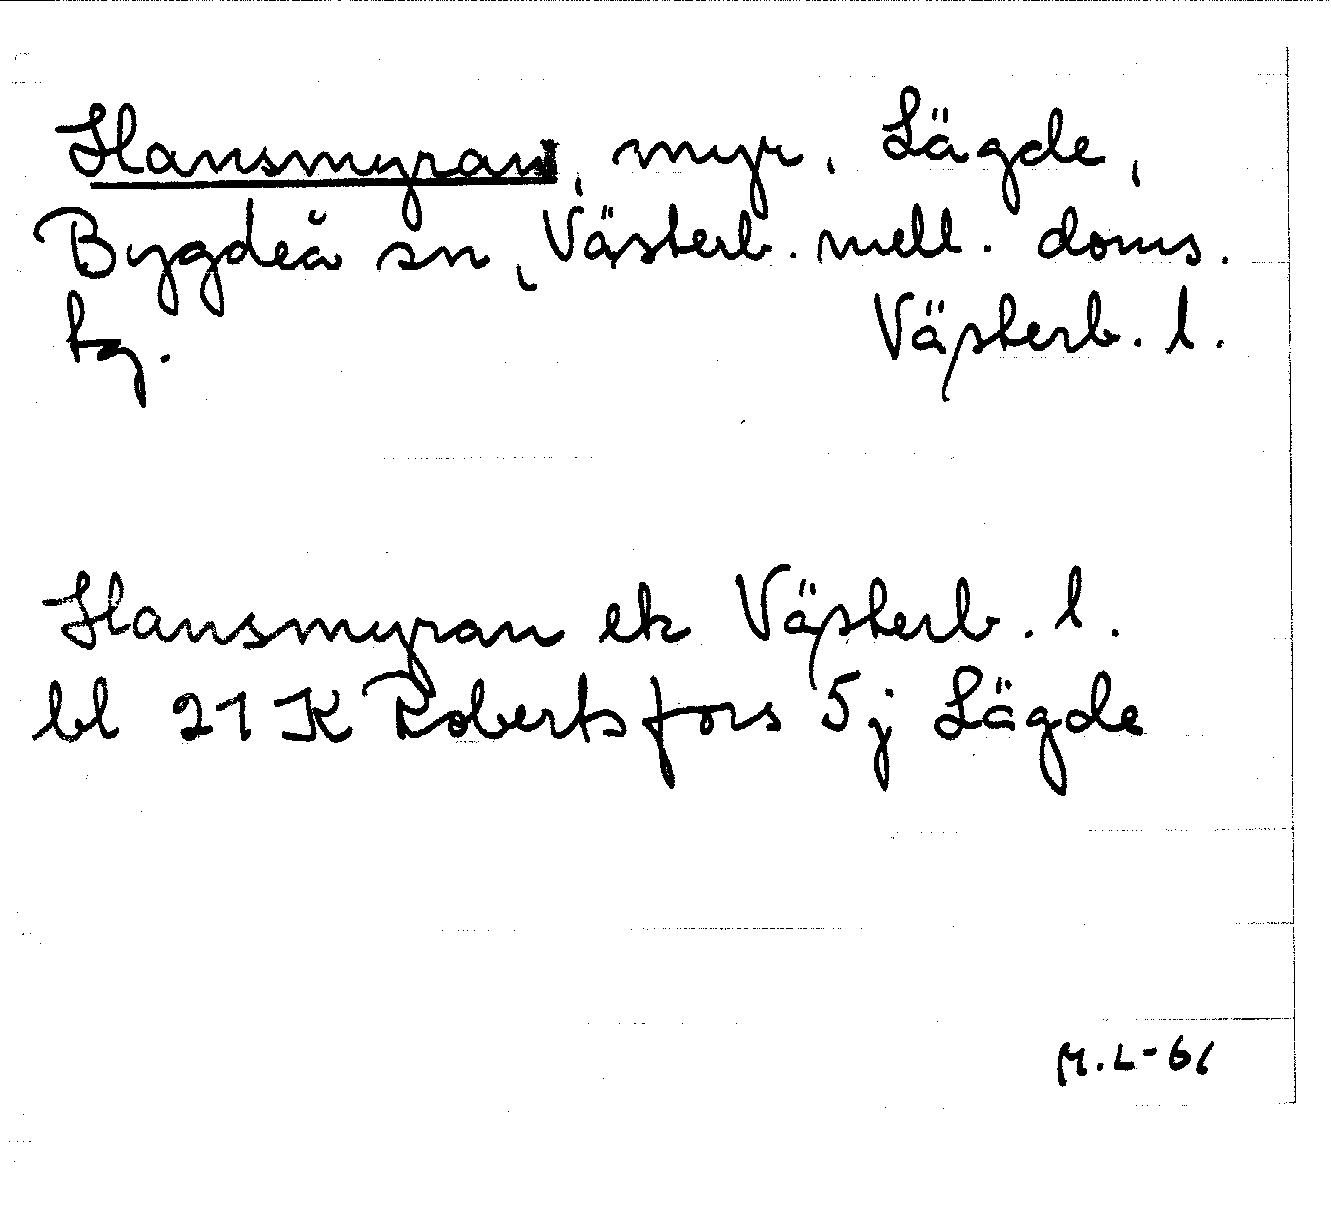 Hansmyran, myr, Lägde,
Bygdeå sn, Västerb. mell. doms.
tg. Västerb. l.
Hansmyran ek Västerb. l.
bl 21 K Robertsfors 5 j Lägde
M.L-61